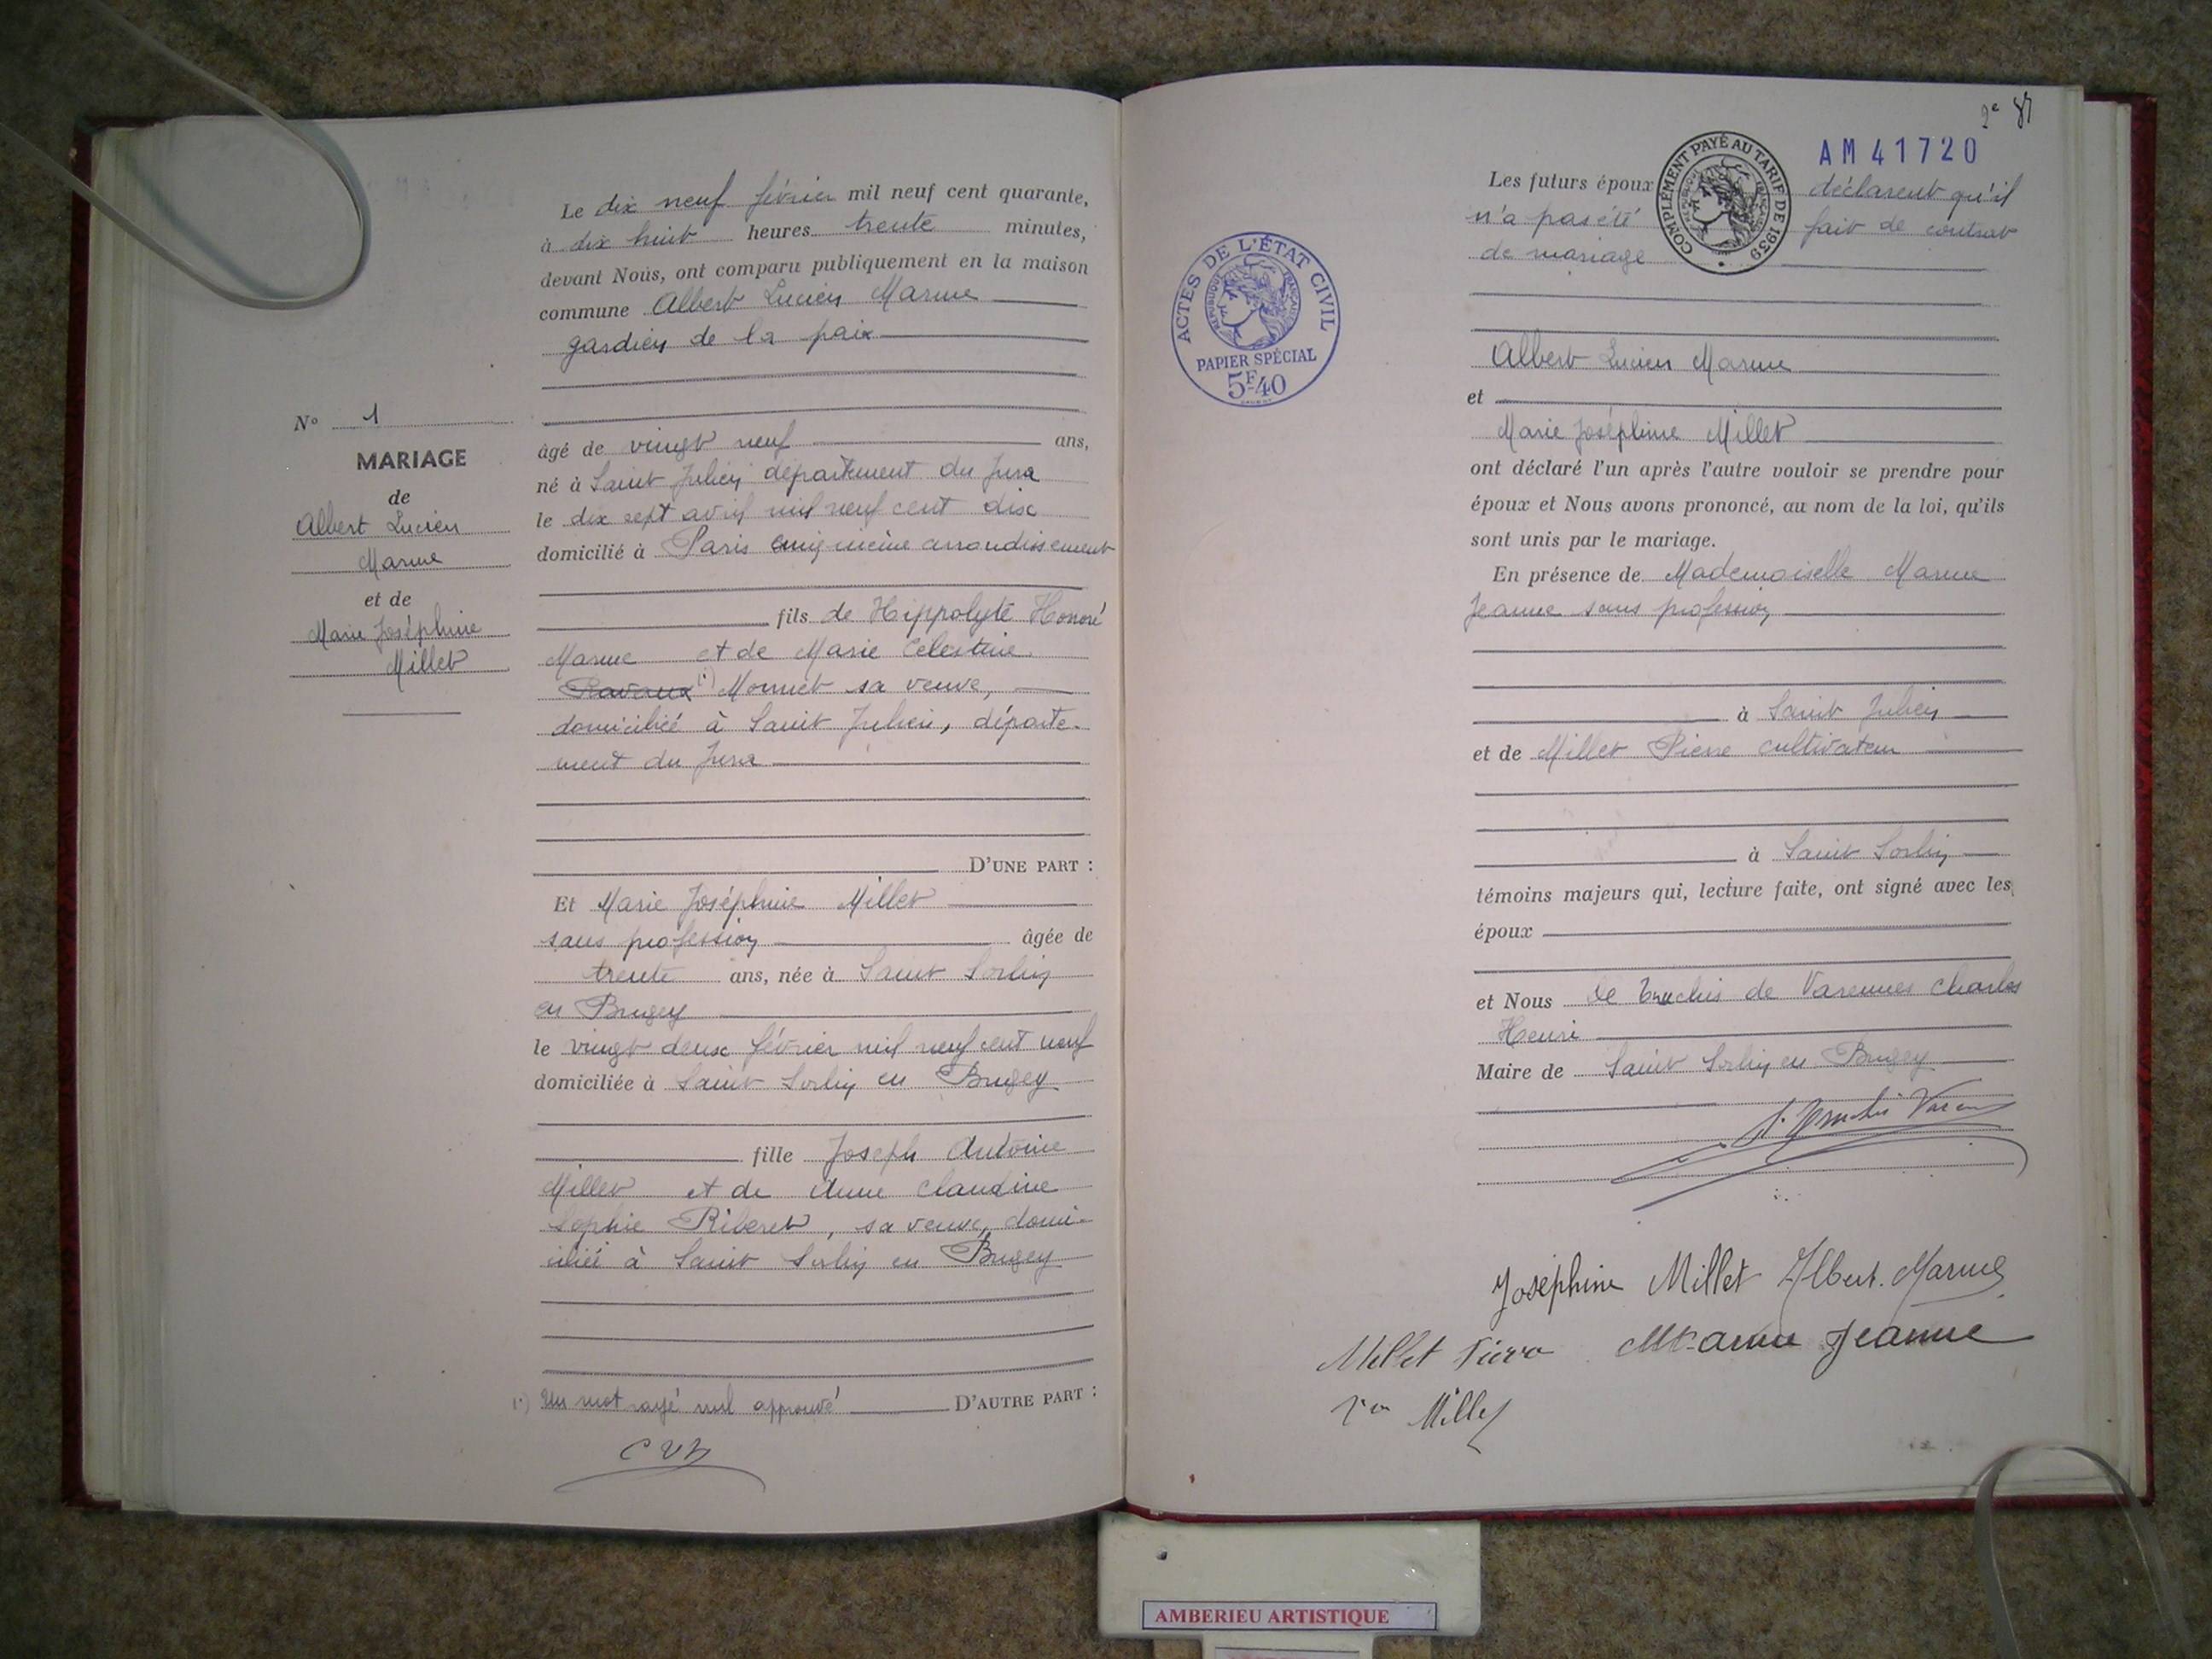 Le dix neuf février mil neuf cent quarante,
à dix huit heures trente minutes,
devant Nous, ont comparu publiquement en la maison
commune Albert Lucien Marme
gardien de la paix
N° 1
MARIAGE
de
Albert Lucien
Marme
et de
Marie Joséphine
Millet
âgé de vingt neuf ans,
né à Saint Julien département du Jura
le dix sept avril mil neuf cent dix
domicilié à Paris cinquième arrondissement
fils de Hippolyte Honoré
Marme et de Marie Célestine
Ravaux (1) Monnet sa veuve,
domiciliée à Saint Julien, départe-
ment du Jura
D'UNE PART :
Et Marie Joséphine Millet
sans profession âgée de
trente ans, née à Saint Sorlin
en Bugey
le vingt deux février mil neuf cent neuf
domiciliée à Saint Sorlin en Bugey
fille Joseph Antoine
Millet et de Anne Claudine
Sophie Riberet, sa veuve, domi-
ciliée à Saint Sorlin en Bugey
(1) Un mot rayé nul approuvé D'AUTRE PART :
CVB
2e 87
AM 41720
COMPLÉMENT PAYÉ AU TARIF DE 1939
RÉPUBLIQUE FRANÇAISE
Les futurs époux déclarent qu'il
n'a pas été fait de contrat
de mariage
ACTES DE L'ÉTAT CIVIL
RÉPUBLIQUE FRANÇAISE
PAPIER SPÉCIAL
5F40
Albert Lucien Marme
et
Marie Joséphine Millet
ont déclaré l'un après l'autre vouloir se prendre pour
époux et Nous avons prononcé, au nom de la loi, qu'ils
sont unis par le mariage.
En présence de Mademoiselle Marme
Jeanne sans profession
à Saint Julien
et de Millet Pierre cultivateur
à Saint Sorlin
témoins majeurs qui, lecture faite, ont signé avec les
époux
et Nous de Truchis de Varennes Charles
Henri
Maire de Saint Sorlin en Bugey
Joséphine Millet Albert. Marme
Millet Pierre Marme Jeanne
Millet
AMBERIEU ARTISTIQUE